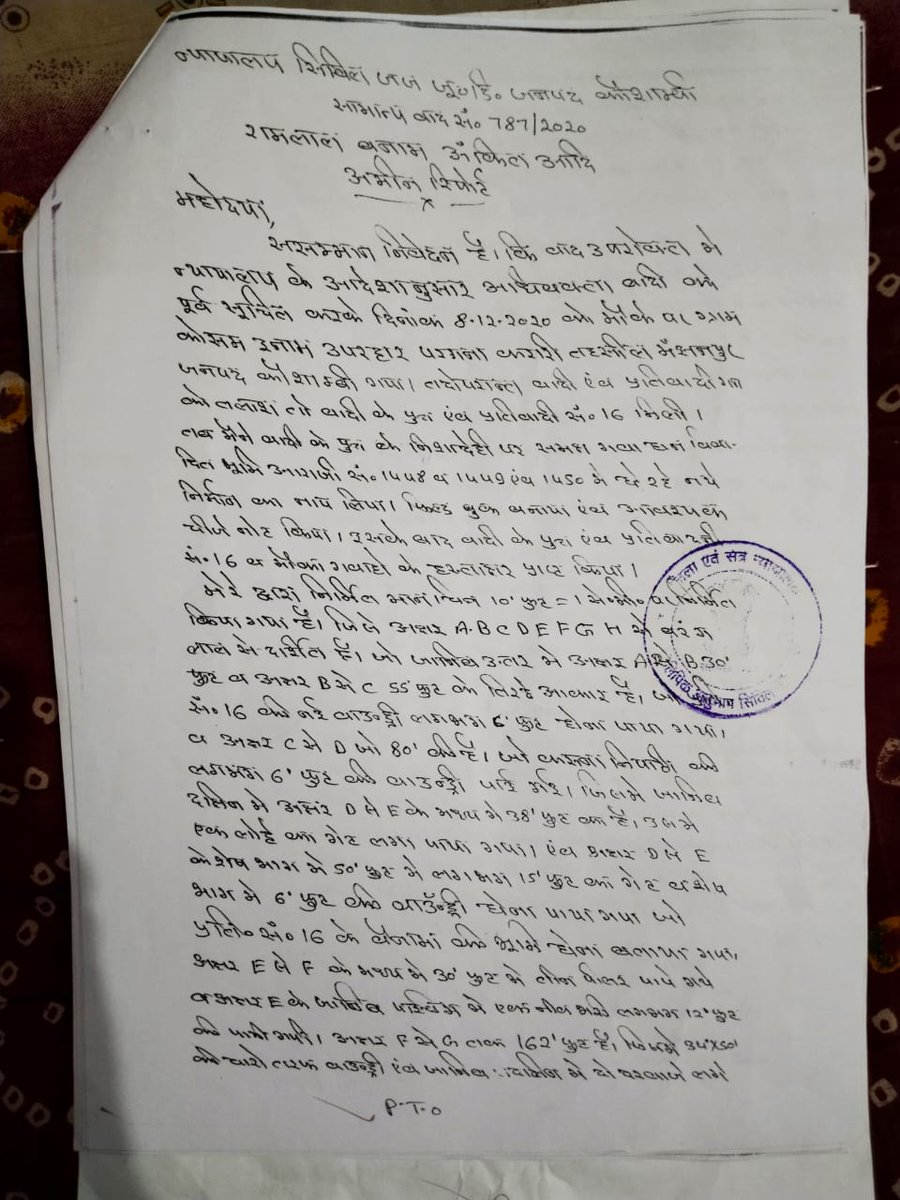 न्यायालय सिविल जज जू०डि० जनपद कौशाम्बी
सामान्य वाद सं० 787/2020
रामलाल बनाम अंकित आदि
अमीन रिपोर्ट
महोदया,
ससम्मान निवेदन है। कि वाद उपरोक्त मे
न्यायालय के आदेशानुसार अधिवक्ता वादी को
पूर्व सूचित करके दिनांक 8.12.2020 को मौके पर ग्राम
कोसम इनाम उपरहार परगना करारी तहसील मंझनपुर
जनपद कौशाम्बी गया। तदोपरान्त वादी एंव प्रतिवादीगण
को तलाशा तो वादी के पुत्र एंव प्रतिवादी सं० 16 मिली।
तब मैने वादी के पुत्र के निशादेही पर समक्ष गवाहान विवा-
दित भूमि आराजी सं० 1448 व 1449 एंव 1450 मे हो रहे नये
निर्माण का नाप लिया। फिल्ड बुक बनाया एंव आवश्यक
चीजे नोट किया। इसके बाद वादी के पुत्र एंव प्रतिवादी
सं० 16 व मौका गवाहो के हस्ताक्षर प्राप्त किया।
मेरे द्वारा निर्मित मानचित्र 10' फुट = 1 से०मी० पर निर्मित
किया गया है। जिसे अक्षर A.B C D E F G H से व रंग
लाल से दर्शित है। जो जानिब उत्तर मे अक्षर A से B 30'
फुट व अक्षर B से C 55' फुट के तिरछे आकार है,
सं० 16 की नई बाउन्ड्री लगभग 6' फुट होना पाया गया।
व अक्षर C से D जो 80' की है। जो की
लगभग 6' फुट की बाउन्ड्री पाई गई। जिसमे जानिब
दक्षिन मे अक्षर D से E के मध्य मे 38' फुट का है, उसमे
एक लोहे का गेट लगा पाया गया। एंव अक्षर D से E
के शेष भाग मे 50' फुट मे लगभग 15' फुट का गेट व शेष
भाग मे 6' फुट की बाउन्ड्री होना पाया गया जो
प्रति० सं० 16 के बैनामा की भूमि होना बताया गया,
अक्षर E से F के मध्य मे 30' फुट मे तीन पिलर पाये गये
व अक्षर E के जानिब पश्चिम मे एक नीव भरी लगभग 12' फुट
की पायी गयी। अक्षर F से G तक 162' फुट है, जिसमे 34'x50'
के चारो तरफ बाउन्ड्री एंव जानिब दक्षिन मे दो दरवाजे लगे
P.T.O
जिला एवं सत्र न्यायालय
लिपिक अनुभाग सिविल